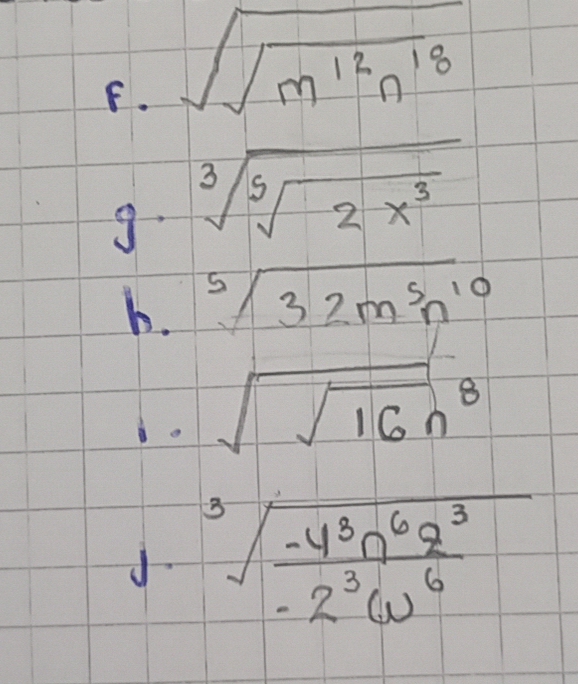 f. √√m¹²n¹⁸
g. ³√⁵√2x³
h. ⁵√32m⁵n¹⁰
i. √√16n⁸
j. ³√-4³n⁶2³/-2³w⁶